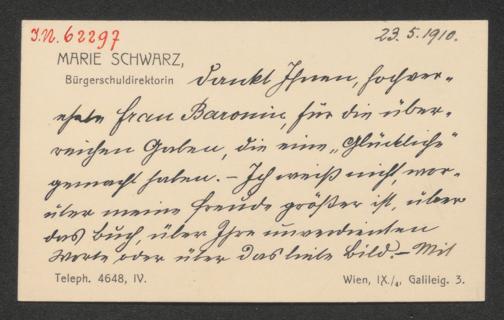 J.N. 62297
23. 5. 1910.
MARIE SCHWARZ,
Bürgerschuldirektorin
dankt Ihnen, hochver-
ehrte Frau Baronin, für die über-
reichen Gaben, die eine „Glückliche"
gemacht haben. – Ich weiß nicht, wor-
über meine Freude größer ist, über
das Buch, über Ihre unverdienten
Worte oder über das liebe Bild. – Mit
Teleph. 4648, IV.
Wien, IX./4, Galileig. 3.